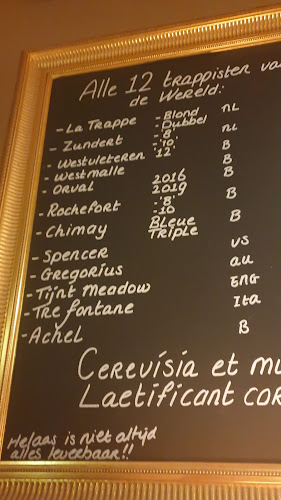 Alle 12 trappisten va
de Wereld:
- La Trappe - Blond NL
- Dubbel
- Zundert - 8 NL
- Westvleteren - '10' B
- Westmalle '12' B
- Orval 2016 B
2019
- Rochefort - '8'
- 10 B
- Chimay Bleue
Triple
- Spencer VS
- Gregorius au
- Tijnt Meadow ENG
- Tre fontane Ita
- Achel B
Cerevisia et mu
Laetificant cor
Helaas is niet altijd
alles leverbaar!!